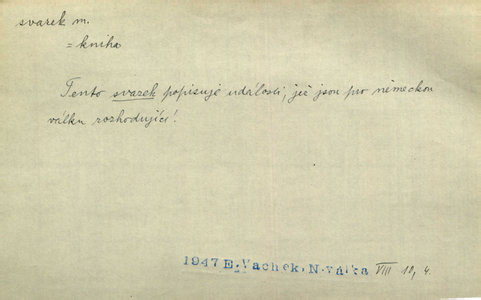 svazek m.
= kniha
Tento svazek popisuje události, jež jsou pro německou
válku rozhodující!
1947 E. Vachek, N. válka VIII 10, 4.